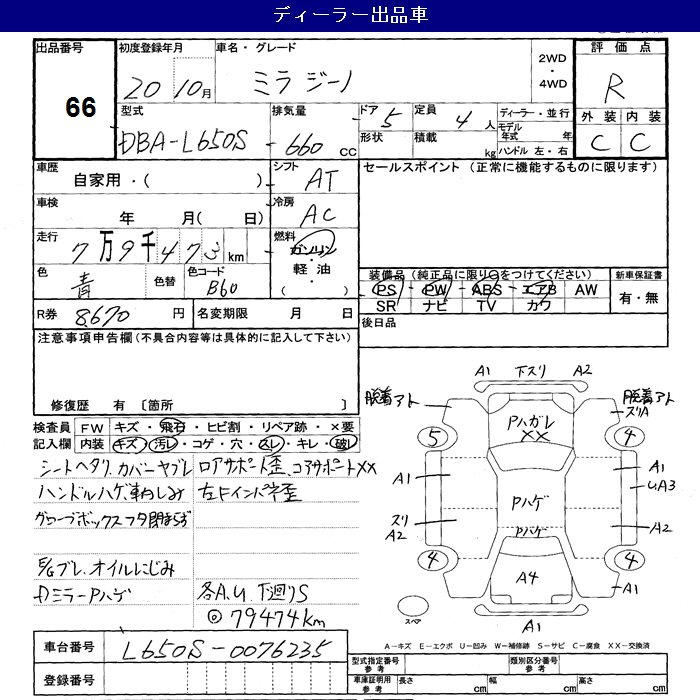 ディーラー出品車
出品番号 初度登録年月 車名・グレード 評価点
66 20 10月 ミラ ジーノ 2WD・4WD R
型式 排気量 ドア 定員 ディーラー・並行 外装 内装
DBA-L650S 660 cc 5 4人 モデル年式 年 C C
形状 積載 kg ハンドル 左・右
車歴 自家用・( ) シフト AT セールスポイント (正常に機能するものに限ります)
車検 年 月( 日) 冷房 AC
走行 7万9千473km 燃料 ガソリン・軽油 ( )
色 青 色替 色コード B60 装備品(純正品に限り○をつけてください) 新車保証書
PS PW ABS エアB AW 有・無
SR ナビ TV カワ
R券 8670円 名変期限 月 日 後日品
注意事項申告欄(不具合内容等は具体的に記入して下さい)
修復歴 有 〔箇所 〕
検査員 FW キズ・飛石・ヒビ割・リペア跡・×要
記入欄 内装 キズ・汚レ・コゲ・穴・スレ・キレ・破レ
シートヘタリ、カバーヤブレ ロアサポート歪、コアサポートXX
ハンドルハゲ
左Fインパネ歪
グローブボックスフタ閉まらず
E/Gブレ、オイルにじみ
DミラーPハゲ 各A.U 下廻りS
◎79474km
A1 下スリ A2
脱着アト 脱着アト
PハガレXX スリA
5 4
A1 A1
UA3
Pハゲ
スリA2 A2
Pハゲ
4 4
A4 A1
スペア A1
A-キズ E-エクボ U-凹み W-補修跡 S-サビ C-腐食 XX-交換済
車台番号 L650S-0076235
登録番号
型式指定番号 参考 類別区分番号 参考
車庫証明用 参考 長さ cm 幅 cm 高さ cm